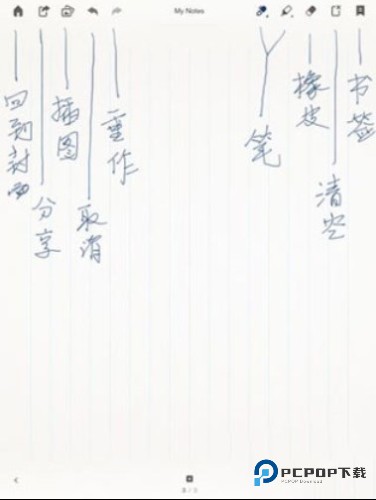 My Notes
回到封面
分享
插图
取消
重作
笔
橡皮
清空
书签
PCPOP下载
PCPOP Download